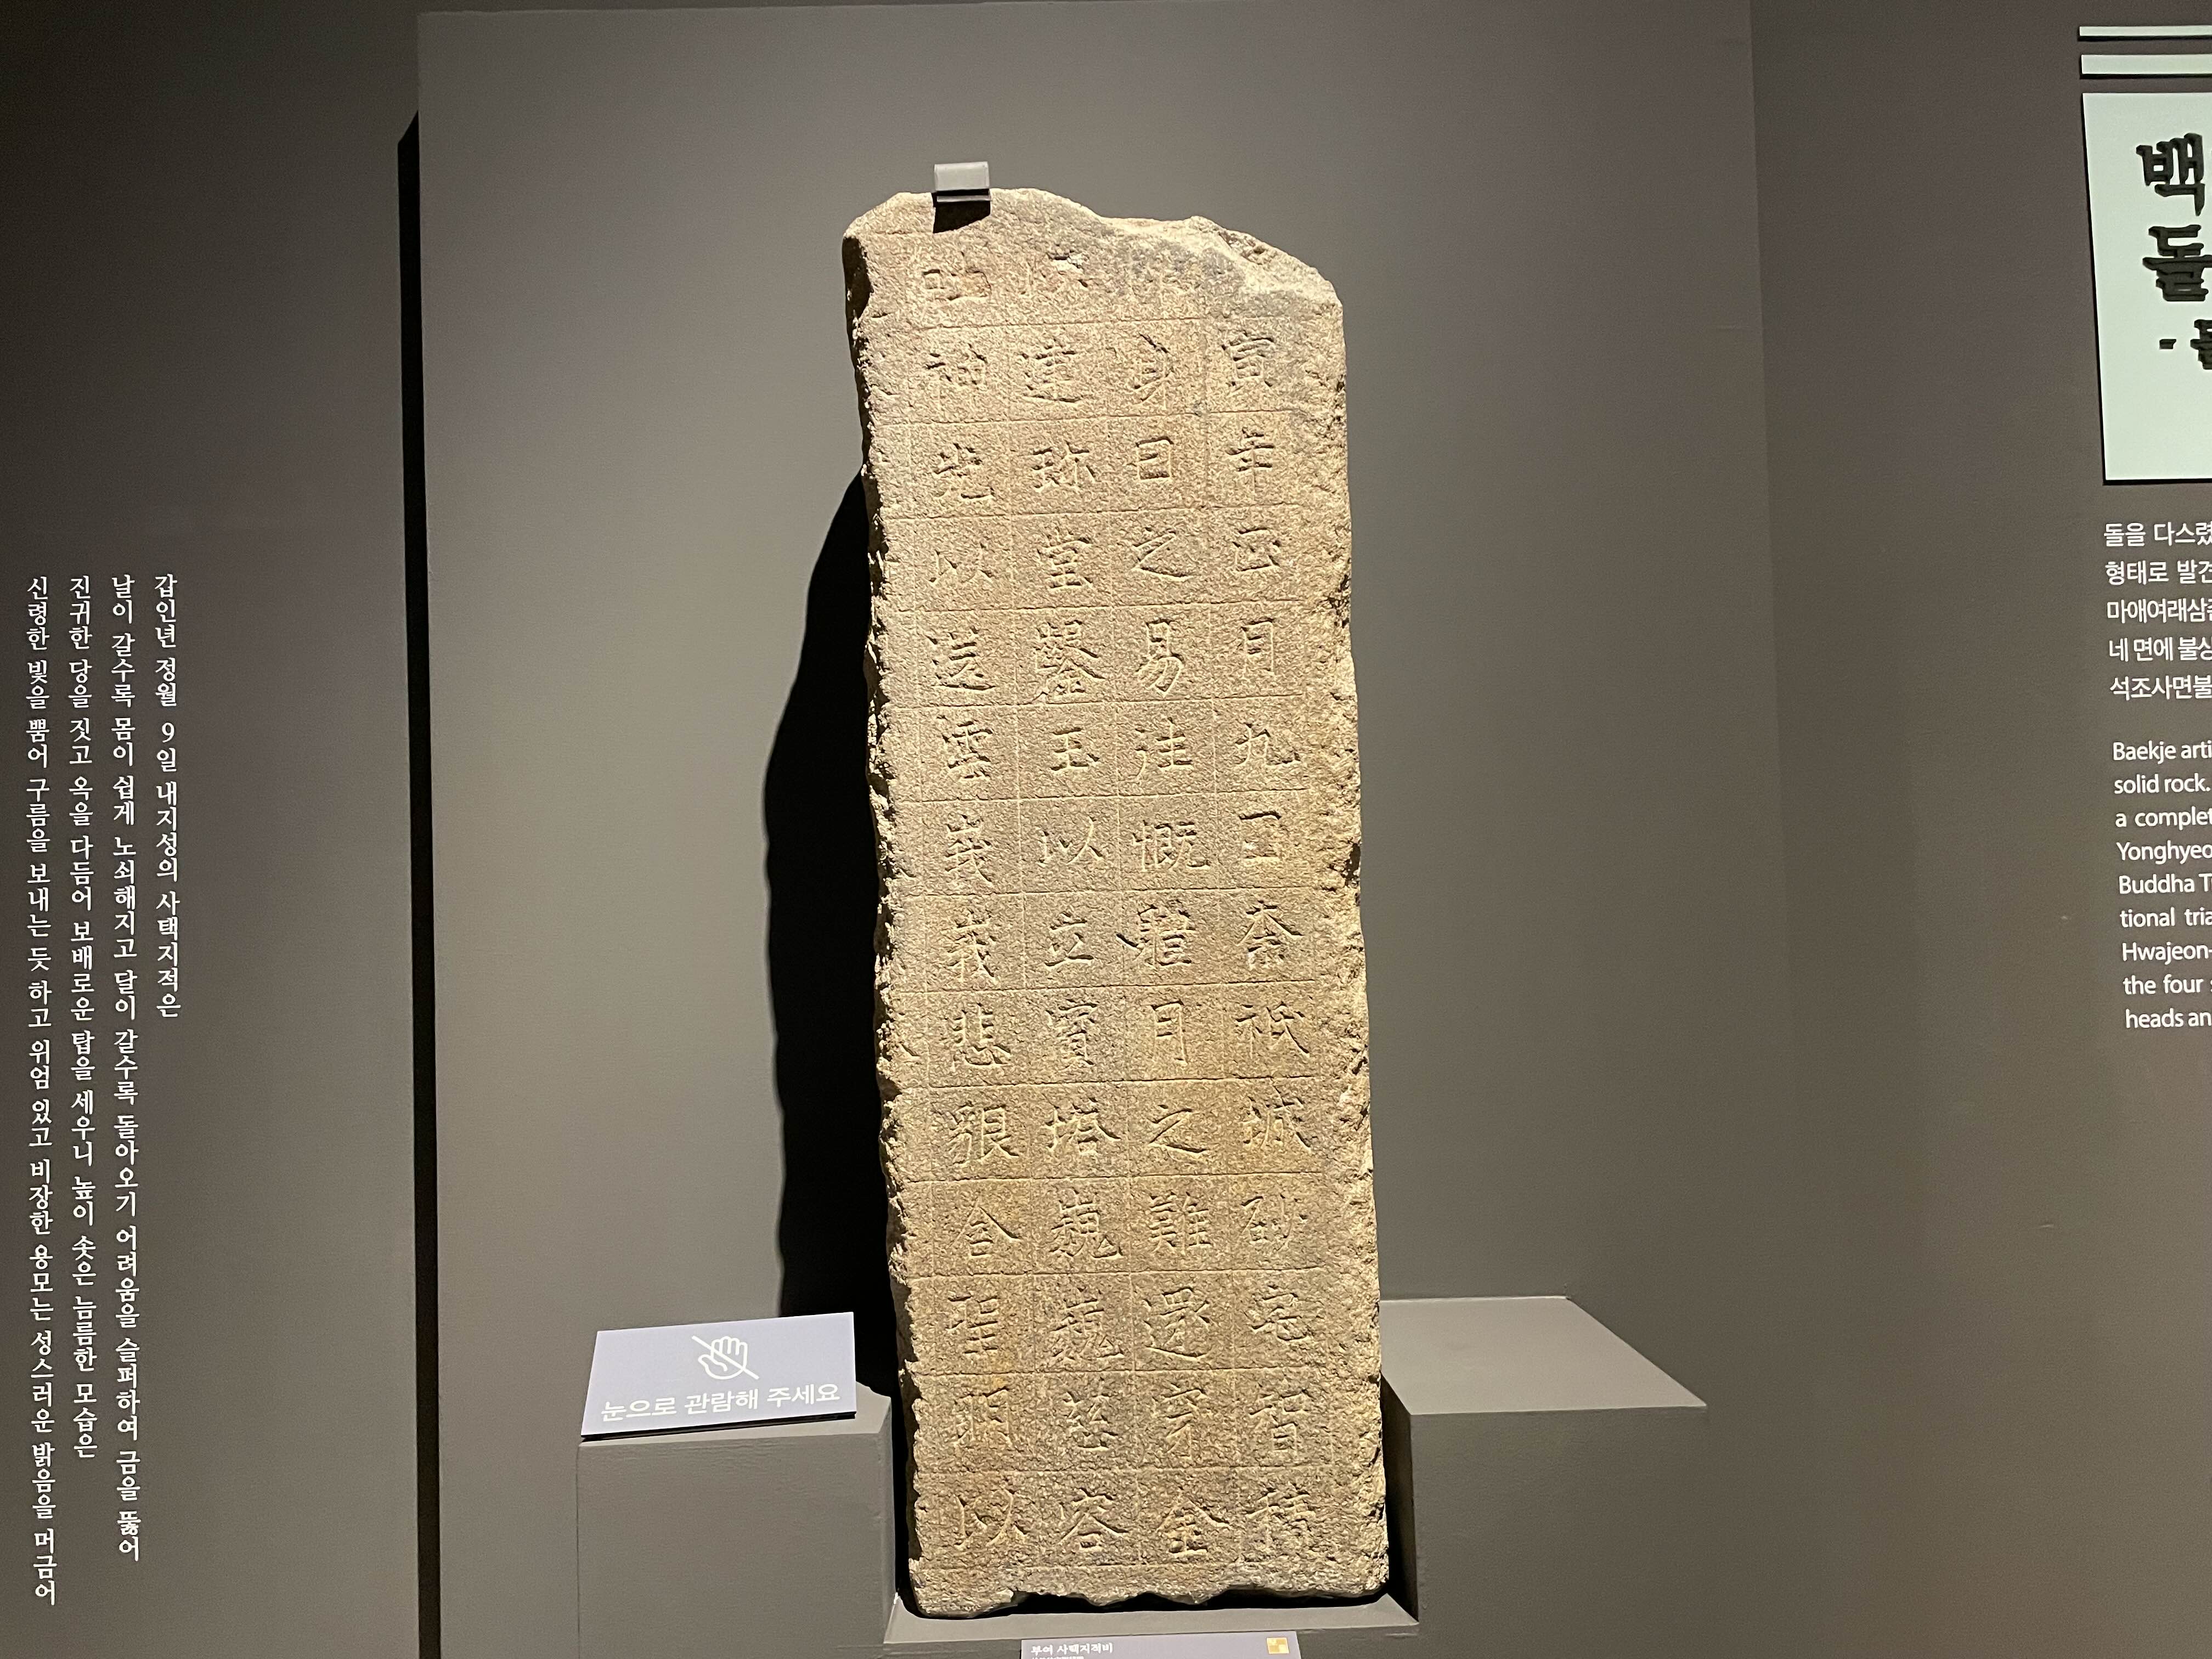 갑인년 정월 9일 내지성의 사택지적은
날이 갈수록 몸이 쉽게 노쇠해지고 달이 갈수록 돌아오기 어려움을 슬퍼하여 금을 뚫어
진귀한 당을 짓고 옥을 다듬어 보배로운 탑을 세우니 높이 솟은 늠름한 모습은
신령한 빛을 뿜어 구름을 보내는 듯 하고 위엄 있고 비장한 용모는 성스러운 밝음을 머금어
寅年正月九日奈祇城砂宅智積
身日之易往慨體月之難還穿金
建珎堂鑿玉以立寶塔巍巍慈容
吐神光以送雲峩峩悲貌含聖明以
눈으로 관람해 주세요
부여 사택지적비
백
돌
돌을 다스렸
형태로 발
마애여래삼
네 면에 불상
석조사면불
Baekje arti
solid rock.
a complet
Yonghyeo
Buddha T
tional tria
Hwajeon-
the four
heads an